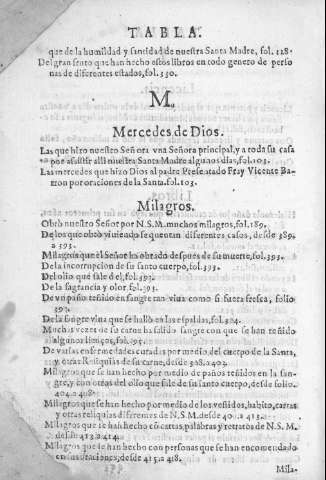 TABLA.
que de la humildad y santidad de nuestra Santa Madre, fol. 128.
Del gran fruto que han hecho estos libros en todo genero de perso
nas de diferentes estados, fol. 130.
M,
Mercedes de Dios.
Las que hizo nuestro Señor a vna Señora principal, y a toda su casa
por assistir alli nuestra Santa Madre algunos dias, fol. 103.
Las mercedes que hizo Dios al padre Presentado Fray Vicente Ba-
rron por oraciones de la Santa. fol. 103.
Milagros.
Obró nuestro Señor por N. S. M. muchos milagros, fol. 389.
De los que obró viuiendo se quentan diferentes casos, desde 389.
a 393.
Milagros que el Señor ha obrado despues de su muerte, fol. 393.
De la incorrupcion de su santo cuerpo, fol. 393.
Del olio que sale del, fol. 393.
De la fragancia y olor, fol. 393.
De vn paño teñido en sangre tan viua como si fuera fresca, folio
De la sangre viua que se halló en las espaldas, fol. 394.
Muchas vezes de su carne ha salido sangre con que se han teñido
algunos lienços, fol. 395.
De varias enfermedades curadas por medio del cuerpo de la Santa,
y otras Reliquias de su carne, desde 398. a 403.
Milagros que se han hecho por medio de paños teñidos en la san-
gre, y con otros del olio que sale de su santo cuerpo, desde folio.
404. a 408.
Milagros que se han hecho por medio de los vestidos, habito, cartas
y otras reliquias diferentes de N. S. M. desde 409. a 412.
Milagros que se han hecho con cartas, palabras y retratos de N. S. M.
desde 412. a 414.
Milagros que se han hecho con personas que se han encomendado
en sus oraciones, desde 415. a 418.
Mila-